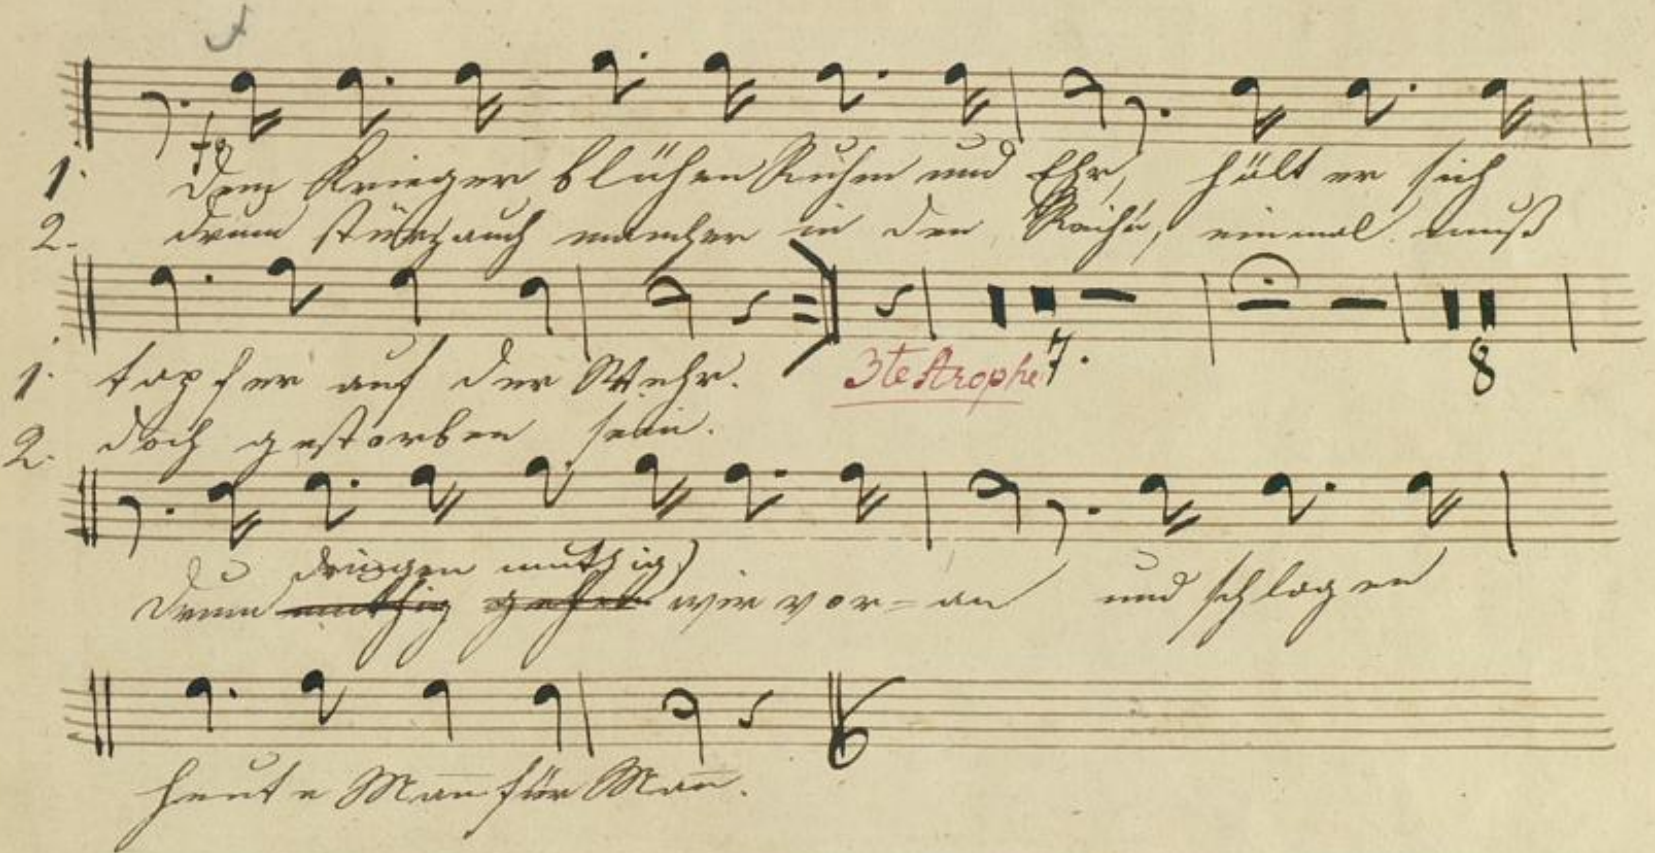 1. Dem Krieger blühen Ruhm und Ehr, hält er sich
2. drum stürz auch mancher in den Reih'n, einmal muß
1. tapfer auf der Wehr. 3te Strophe 7. 8
2. doch gestorben sein.
dringen muthig
Drum muthig gehen wir vor=an und schlagen
heute Man̄ für Man̄.